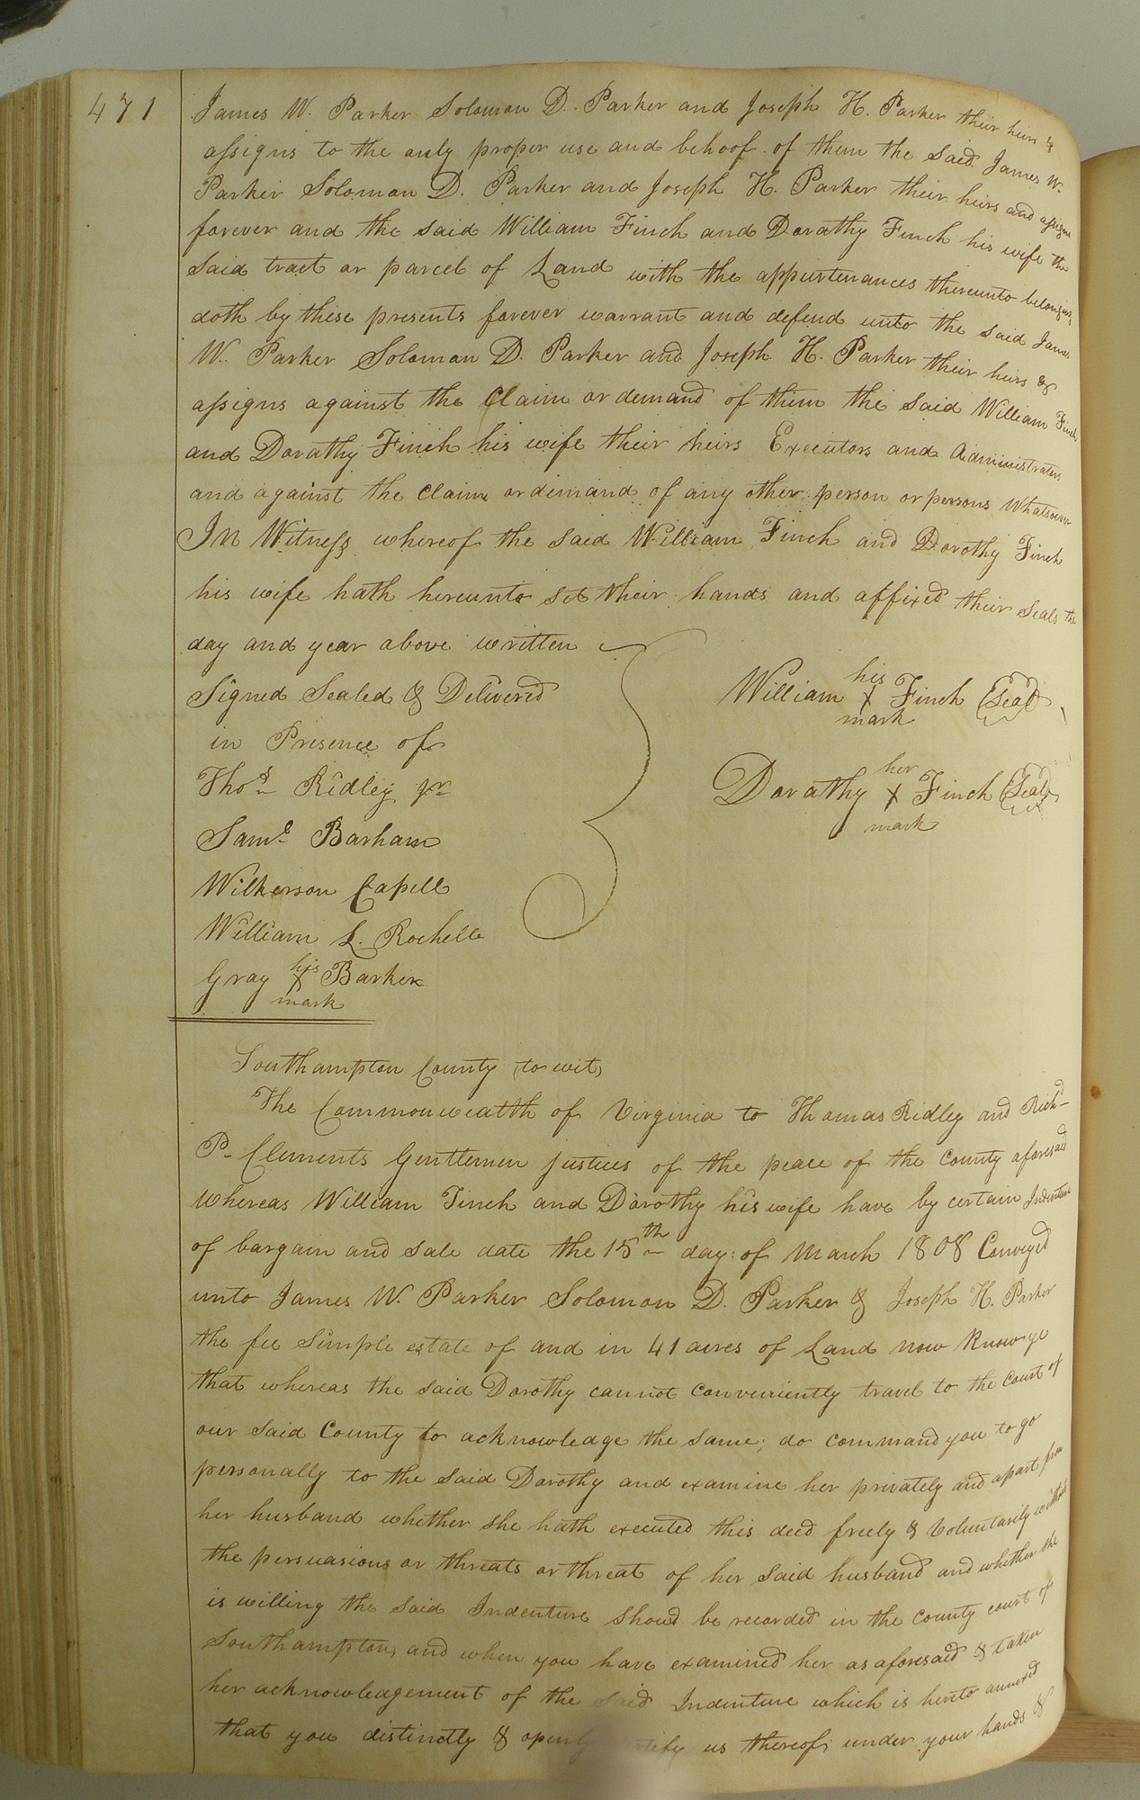 471
James W. Parker Solomon D. Parker and Joseph H. Parker their heirs &
assigns to the only proper use and behoof of them the said James W.
Parker Solomon D. Parker and Joseph H. Parker their heirs and assigns
forever and the said William Finch and Dorathy Finch his wife the
said tract or parcel of Land with the appurtenances thereunto belonging
doth by these presents forever warrant and defend unto the said James
W. Parker Solomon D. Parker and Joseph H. Parker their heirs &
assigns against the Claim or demand of them the said William Finch
and Dorathy Finch his wife their heirs Executors and Administrators
and against the claim or demand of any other person or persons Whatsoever
In Witness whereof the said William Finch and Dorothy Finch
his wife hath hereunto set their hands and affixed their Seals the
day and year above written
Signed Sealed & Delivered
in Presence of
Thos. Ridley jr
Saml. Barham
Wilkerson Capell
William L. Rochelle
Gray his X mark Barker
William his X mark Finch (Seal)
Dorathy her X mark Finch (Seal)
Southampton County to wit,
The Commonwealth of Virginia to Thomas Ridley and Richd
P. Clements Gentlemen justices of the peace of the County aforesaid
Whereas William Finch and Dorothy his wife have by certain Indenture
of bargain and sale date the 15th day of March 1808 Conveyed
unto James W. Parker Solomon D. Parker & Joseph H. Parker
the fee simple estate of and in 41 acres of Land now Know ye
that whereas the said Dorothy cannot conveniently travel to the Court of
our said County to acknowledge the same; do command you to go
personally to the said Dorothy and examine her privately and apart from
her husband whether she hath executed this deed freely & Voluntarily without
the persuasions or threats or threat of her said husband and whether she
is willing the said Indenture shoud be recorded in the County court of
Southampton, and when you have examined her as aforesaid & taken
her acknowledgement of the said Indenture which is hereto annexed
that you distinctly & openly us thereof, under your hands &